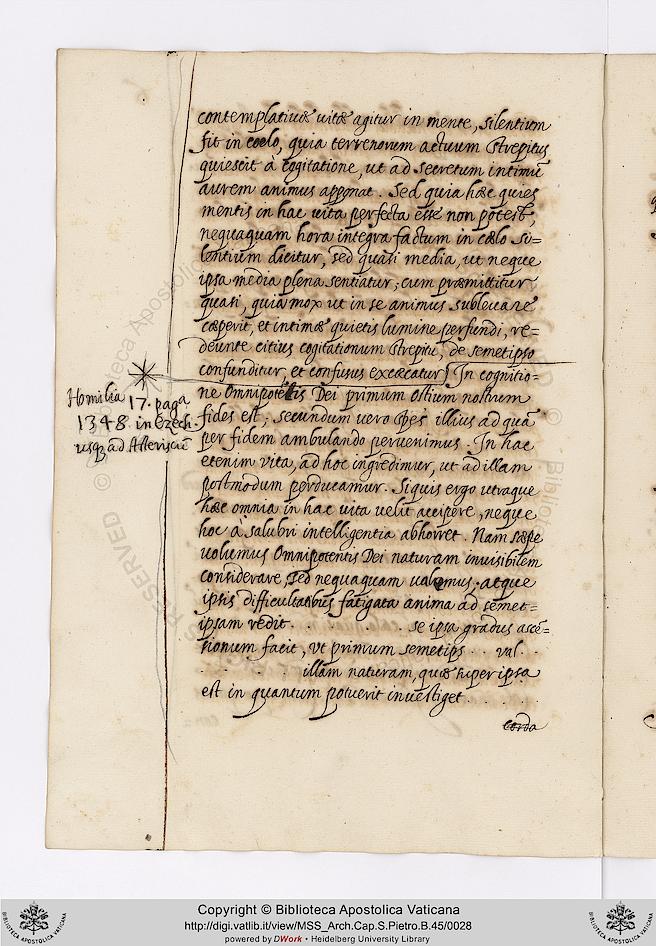 contemplatiuæ uitæ agitur in mente, silentium
fit in coelo, quia terrenorum actuum strepitus
quiescit à cogitatione, ut ad secretum intimū
aurem animus apponat. Sed quia hæc quies
mentis in hac uita perfecta esse non potest,
nequaquam hora integra factum in cœlo si=
lentium dicitur, sed quasi media, ut neque
ipsa media plena sentiatur; cum præmittitur
quasi, quia mox ut in se animus subleuare
cœperit, et intimæ quietis lumine perfundi, re=
deunte citius cogitationum strepitu, de semetipso
confunditur, et confusus excæcatur] In cognitio=
ne Omnipotētis Dei primum ostium nostrum
fides est; secundum uero spes illius ad quā
per fidem ambulando peruenimus. In hac
etenim vita, ad hoc ingredimur, ut ad illam
postmodum perducamur. Siquis ergo utraque
hæc omnia in hac uita uelit accipere, neque
hoc à salubri intelligentia abhorret. Nam sæpe
uolumus Omnipotentis Dei naturam inuisibilem
considerare, sed nequaquam ualemus. atque
ipsis difficultatibus fatigata anima ad semet=
ipsam redit . . . . se ipsa gradus ascē=
sionum facit, vt primum semetips . . val . .
. . . . illam naturam, quæ super ipsa
est in quantum potuerit inuestiget . . . .
corda
Homilia 17. paga
1348. in Ezech.
usq3 ad Asteriscū
Copyright © Biblioteca Apostolica Vaticana
http://digi.vatlib.it/view/MSS_Arch.Cap.S.Pietro.B.45/0028
powered by DWork • Heidelberg University Library